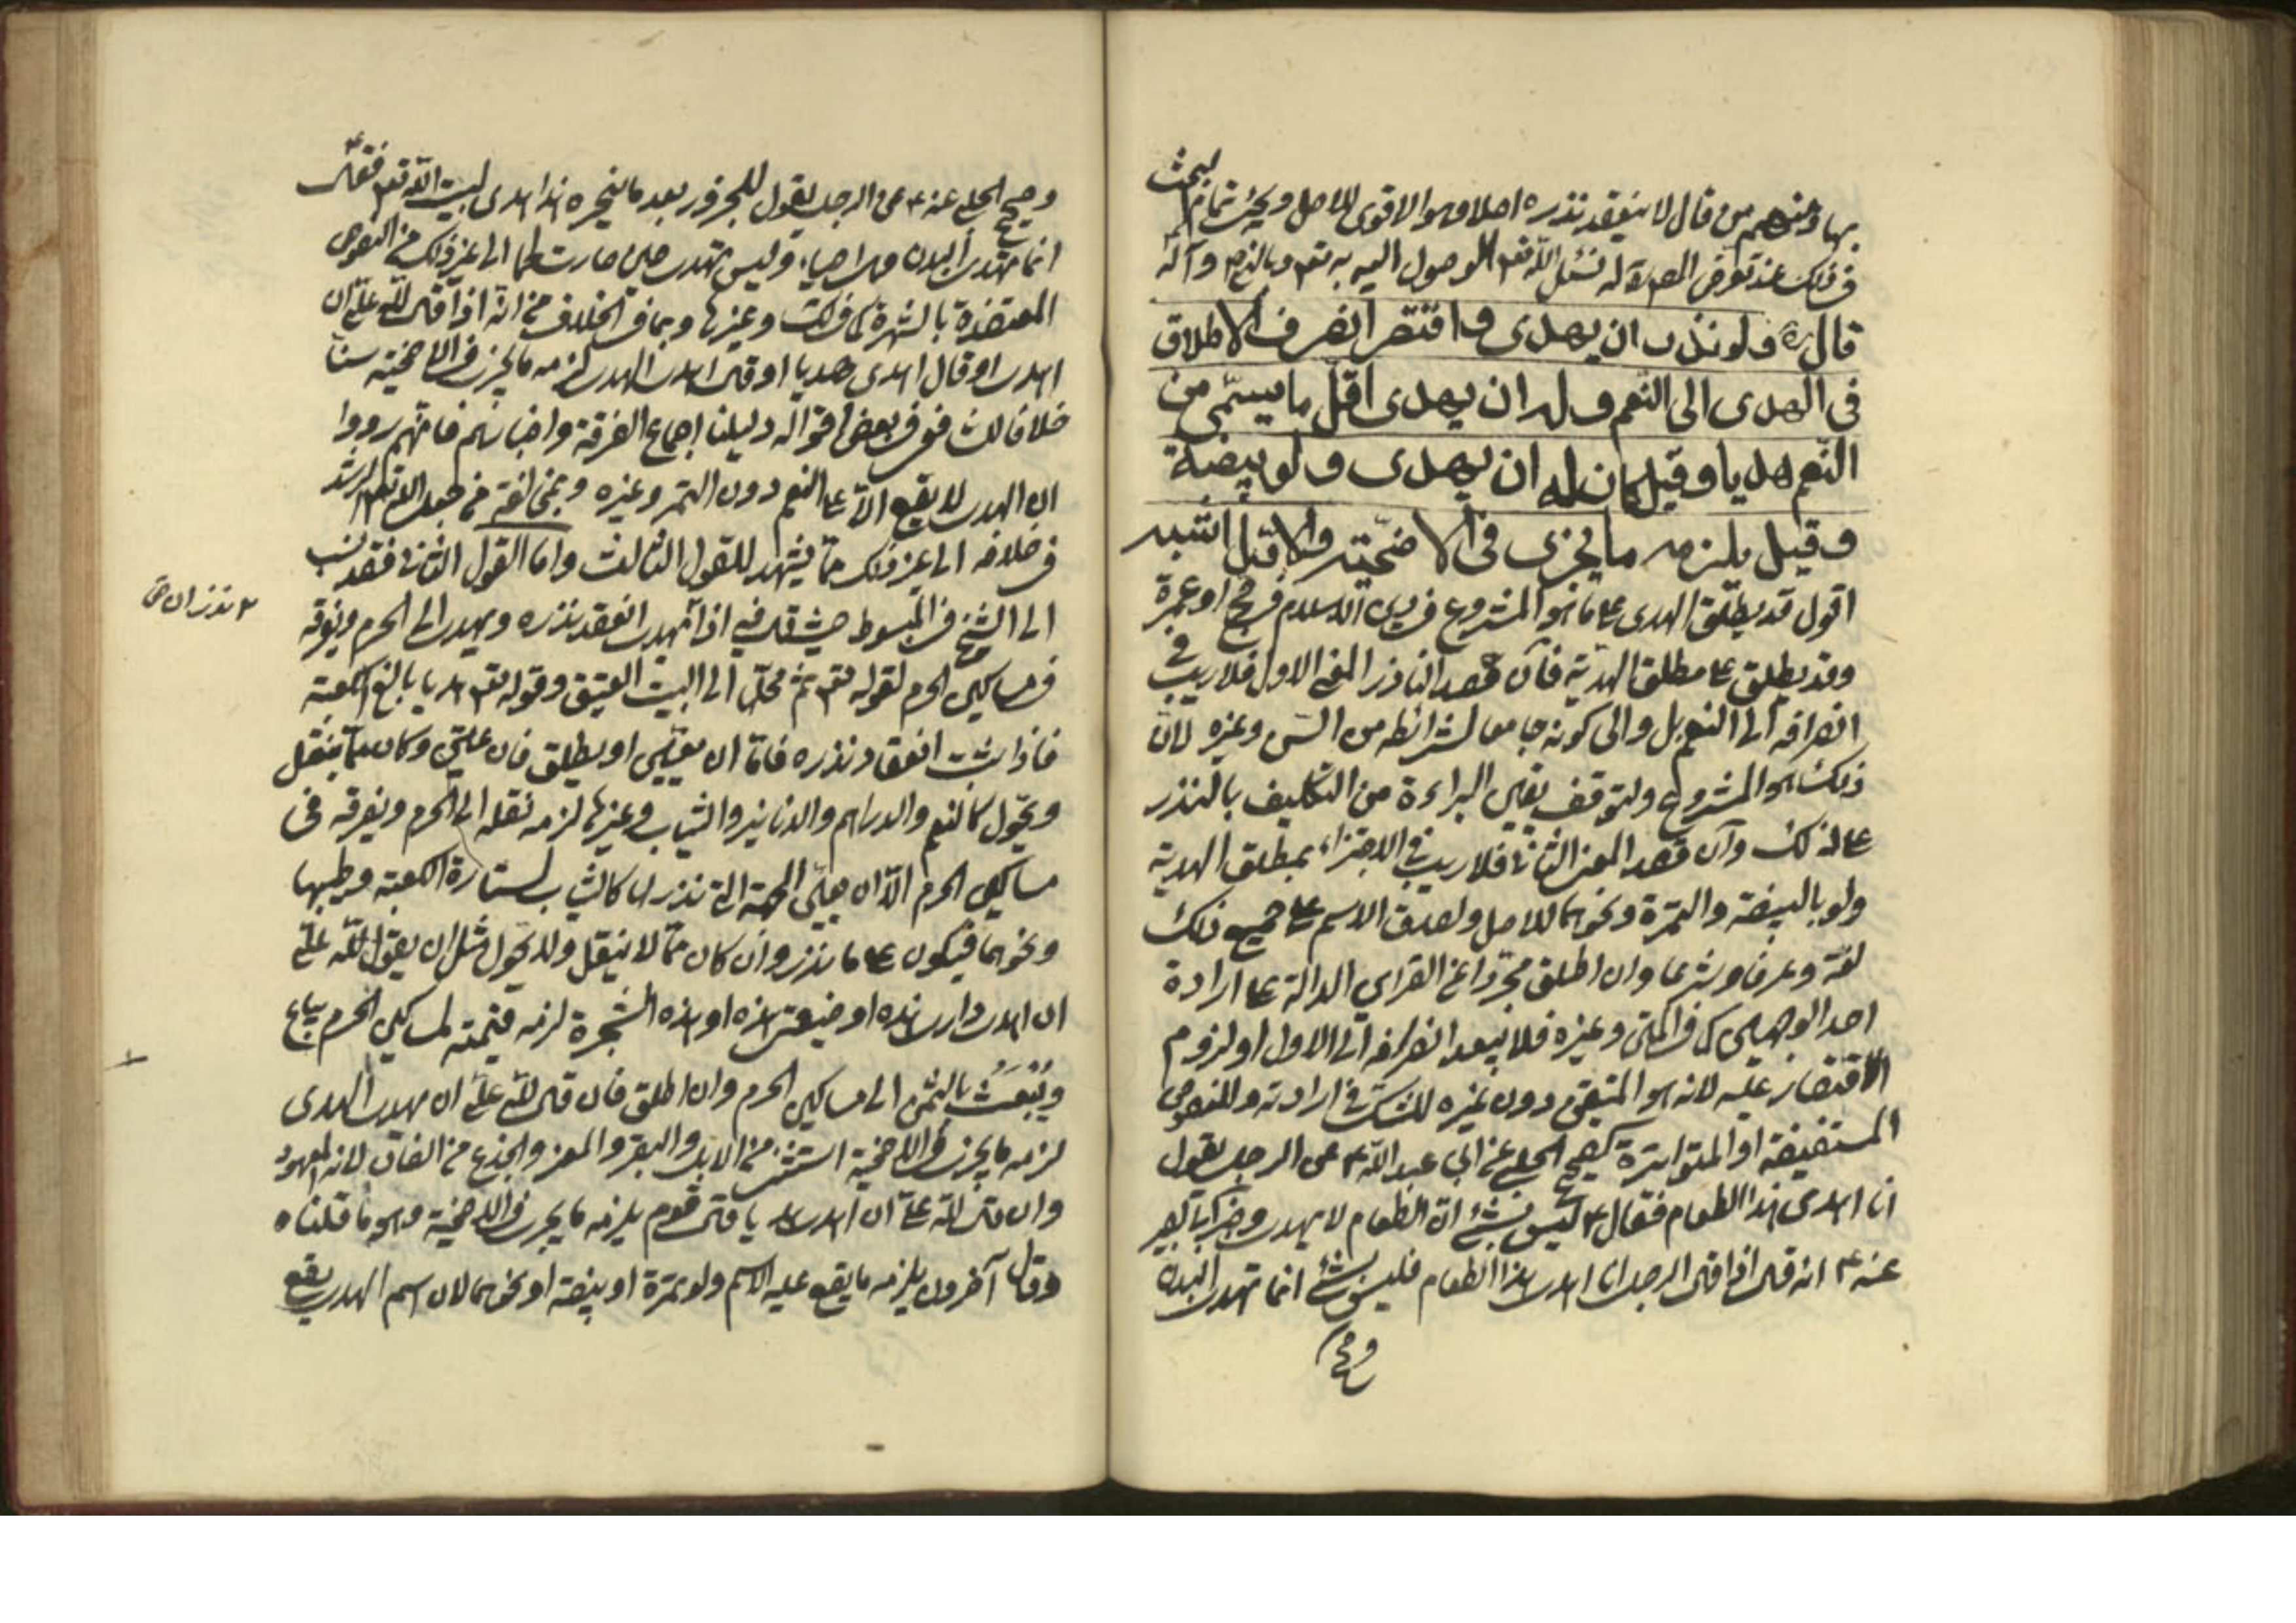 لبحث
بها ومنهم من قال لا ينعقد نذره اصلا وهو الاقوى للاصل ويجئ تمام
في ذلك عند تعرض المص ره له نسئل الله تعم الوصول اليه به تعم وبالنبي ص وآله
قال ره ولو نذر ان يهدى واقتصر انصرف الاطلاق
في الهدى الى النعم وله ان يهدى اقل ما يسمّى من
النعم هديا وقيل كان له ان يهدى ولو بيضة
وقيل يلزمه ما يجزى في الاضحيته والاوّل اشبه
اقول قد يطلق الهدى على ما هو المشروع في دين الاسلام في حج او عمرة
وقد يطلق على مطلق الهدية فان قصد الناذر المعنى الاول فلا ريب في
انصرافه الى النعم بل والى كونه جامعا لشرائطه من السن وغيره لان
ذلك هو المشروع ولتوقف يقين البراءة من التكليف بالنذر
على ذلك وان قصد المعنى الثاني فلا ريب في الاجتزاء بمطلق الهدية
ولو بالبيضة والتمرة ونحوهما للاصل ولصدق الاسم على جميع ذلك
لغة وعرفا وشرعا وان اطلق مجردا عن القراين الدالة على ارادة
احد الوجهين كما في المتن وغيره فلا يبعد انصرافه الى الاول او لزوم
الاقتصار عليه لانه هو المتيقن دون غيره للشك في ارادته وللنصوص
المستفيضة او المتواترة كصحيح الحلبي عن ابي عبد الله ع عن الرجل يقول
انا اهدى هذا الطعام فقال ع ليس بشئ ان الطعام لا يهدى وخبر ابي بصير
عنه ع انه قال اذا قال الرجل انا اهدى هذا الطعام فليس بشئ انما تهدى البدن
وصحيح
وصحيح الحلبي عنه ع عن الرجل يقول للجزور بعد ما ينحره هذا هدى لبيت الله تعم فقال ع
انما تهدى البدن وهن احياء وليس تهدى حين صارت لحما الى غير ذلك من النصوص
المعتضدة بالشهرة كما في لك وغيرها وبما في الخلاف من انه اذا قال لله علي ان
اهدى او قال اهدى هديا او قال اهدى الهدى لزمه ما يجزى في الاضحية سنا
خلافا لش فو في بعض اقواله دليلنا اجماع الفرقة واخبارهم فانهم رووا
ان الهدى لا يقع الا على النعم دون التمر وغيره وبمخالفته من جعل الله تعم الرشد
في خلافه الى غير ذلك مما يشهد للقول الثالث واما القول الثاني فقد نسب
الى الشيخ في المبسوط حيث قال فيه اذا يهدى انعقد نذره ويهدى الى الحرم ويفرقه
في مساكين الحرم لقوله تعم ثم محلها الى البيت العتيق وقوله تعم هديا بالغ الكعبة
فاذا ثبت انعقاد نذره فاما ان يعين او يطلق فان عين وكان مما ينقل
ويحول كالنعم والدراهم والدنانير والثياب وغيرها لزمه نقله الى الحرم ويفرقه في
مساكين الحرم الا ان يعين الجهة التي نذر لها كالثياب لستارة الكعبة وطيبها
ونحوهما فيكون على ما نذر وان كان مما لا ينقل ولا يحول مثل ان يقول لله علي
ان اهدى داري هذه او ضيعتي هذه او هذه الشجرة لزمه قيمته لمساكين الحرم يباع
ويُبْعَثُ بالثمن الى مساكين الحرم وان اطلق فان قال لله علي ان يهدى الهدى
لزمه ما يجزى في الاضحية الثني من الابل والبقر والمعز والجذع من الضأن لانه المعهود
وان قال لله علي ان اهدى هديا قال قوم يلزمه ما يجزى في الاضحية وهو ما قلناه
وقال آخرون يلزمه ما يقع عليه الاسم ولو تمرة او بيضة او نحوهما لان اسم الهدى يقع
نذر ان ص